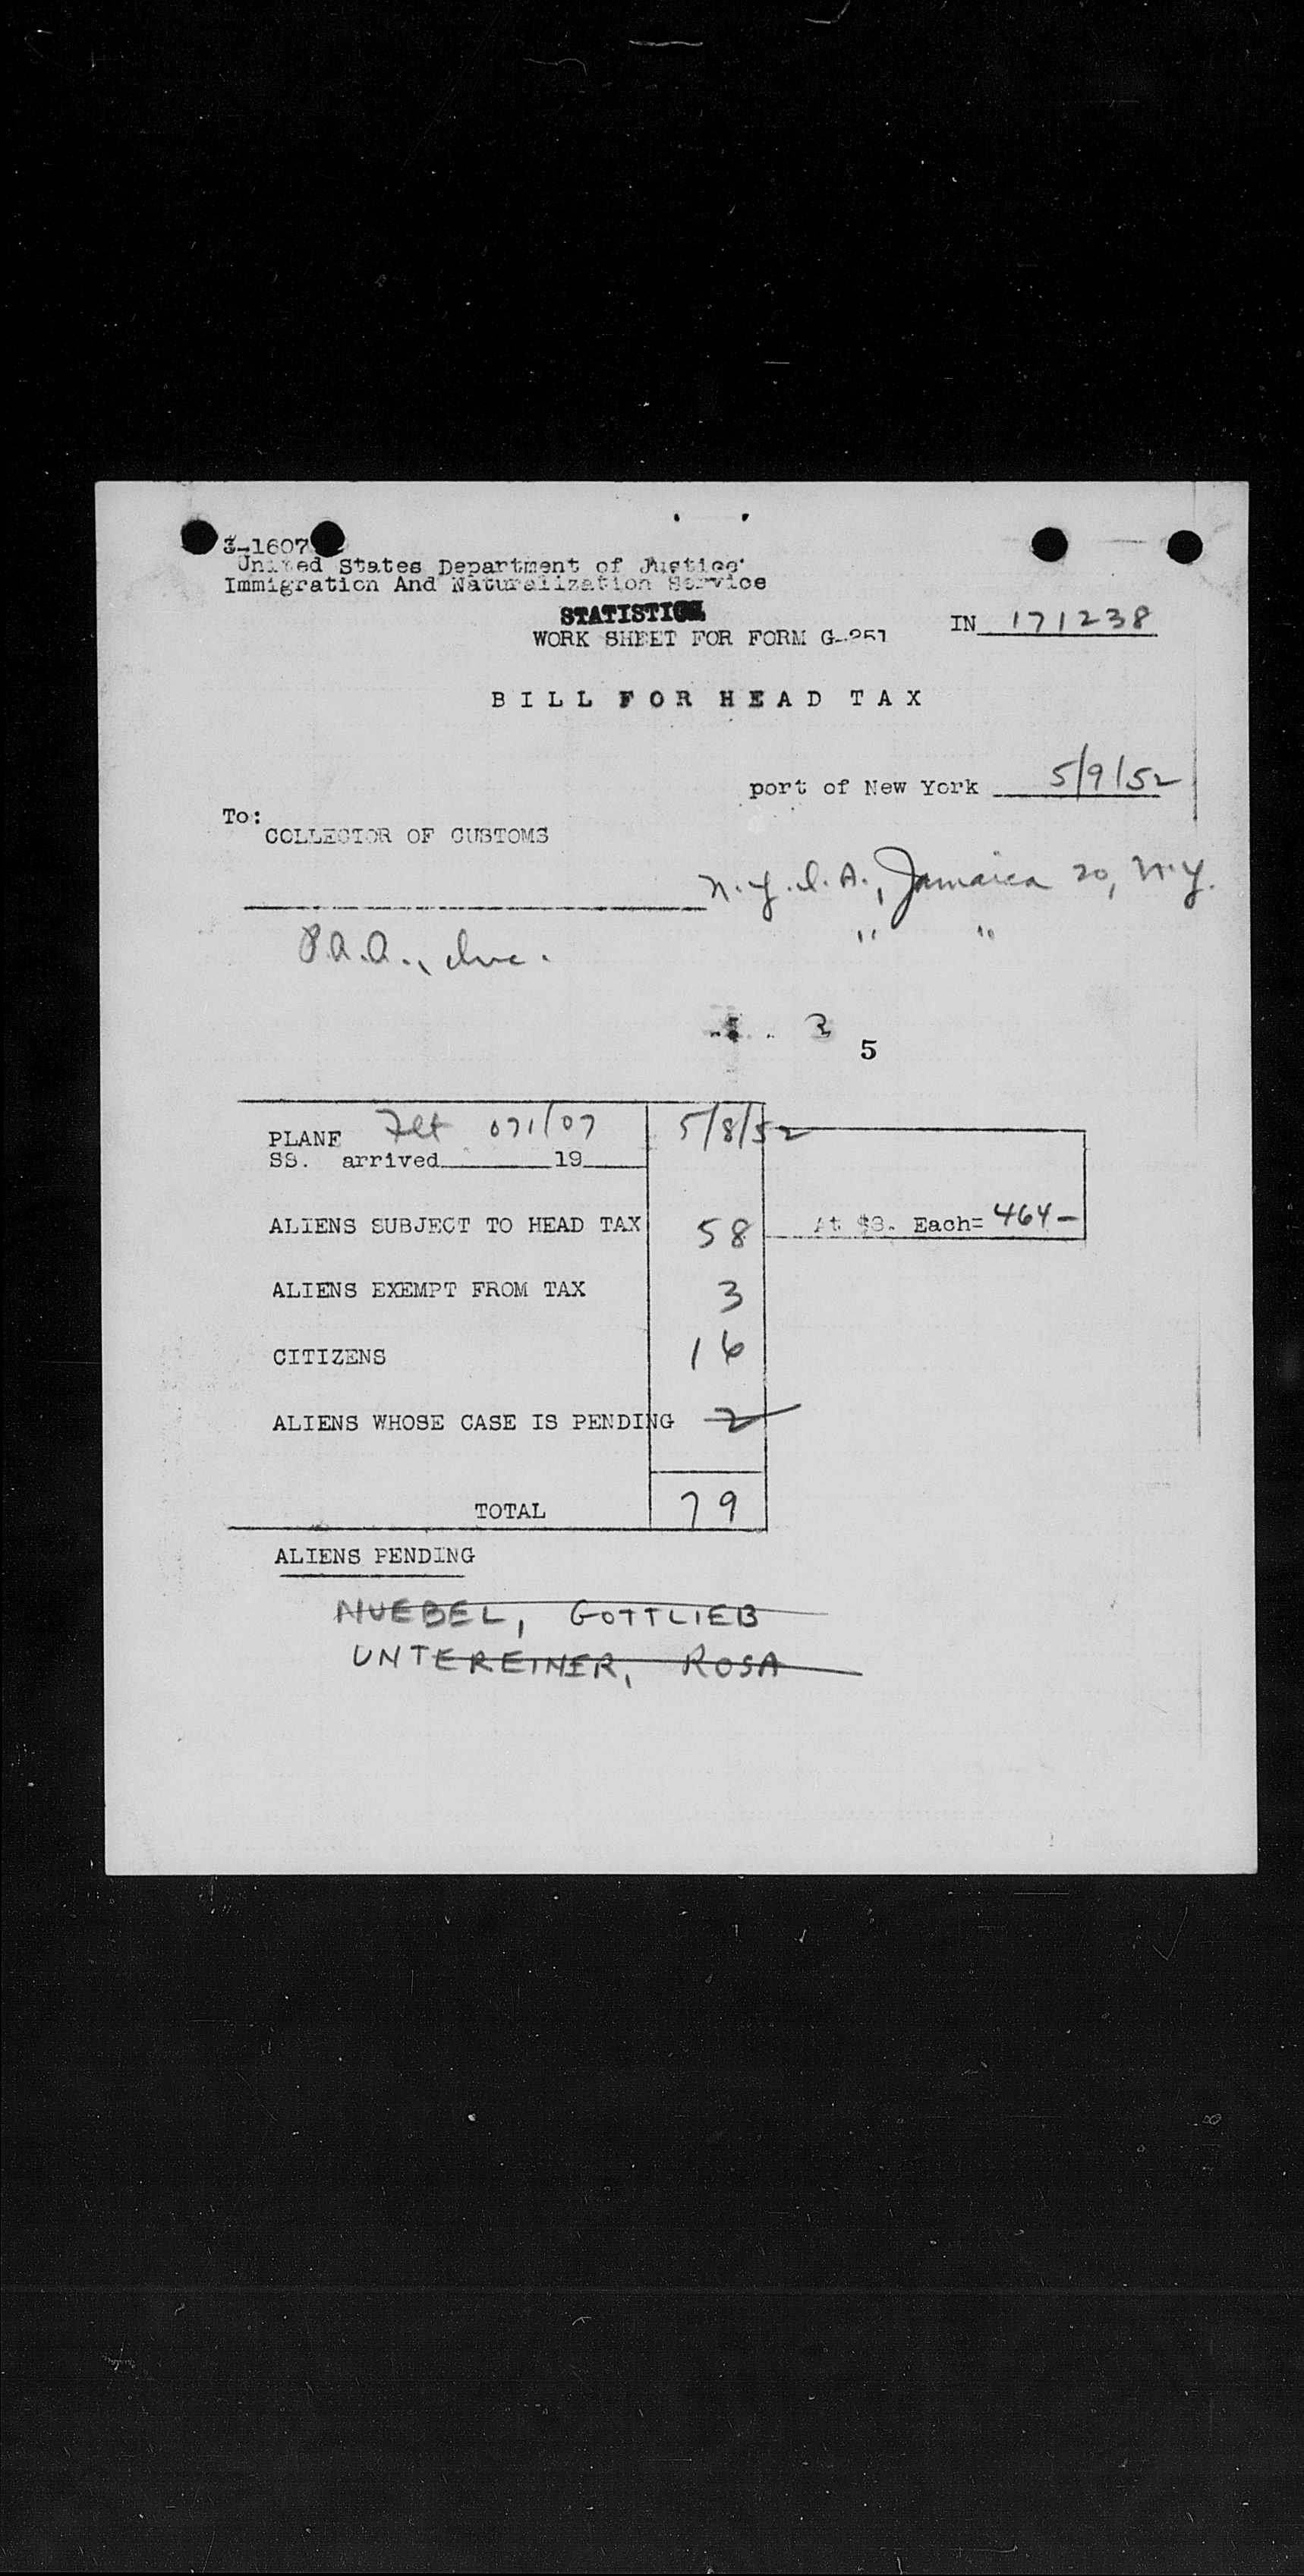 3-1607
United States Department of Justice
Immigration And Naturalization Service
STATISTICS
WORK SHEET FOR FORM G-251
IN 171238
BILL FOR HEAD TAX
port of New York 5/9/52
To:
COLLECTOR OF CUSTOMS
N.Y.I.A., Jamaica 20, N.Y.
P.A.A., Inc. " "
5
PLANE Flt 071/07 5/8/52
SS. arrived 19
ALIENS SUBJECT TO HEAD TAX 58 At $8. Each= 464-
ALIENS EXEMPT FROM TAX 3
CITIZENS 16
ALIENS WHOSE CASE IS PENDING 2
TOTAL 79
ALIENS PENDING
NUEBEL, GOTTLIEB
UNTEREINER, ROSA